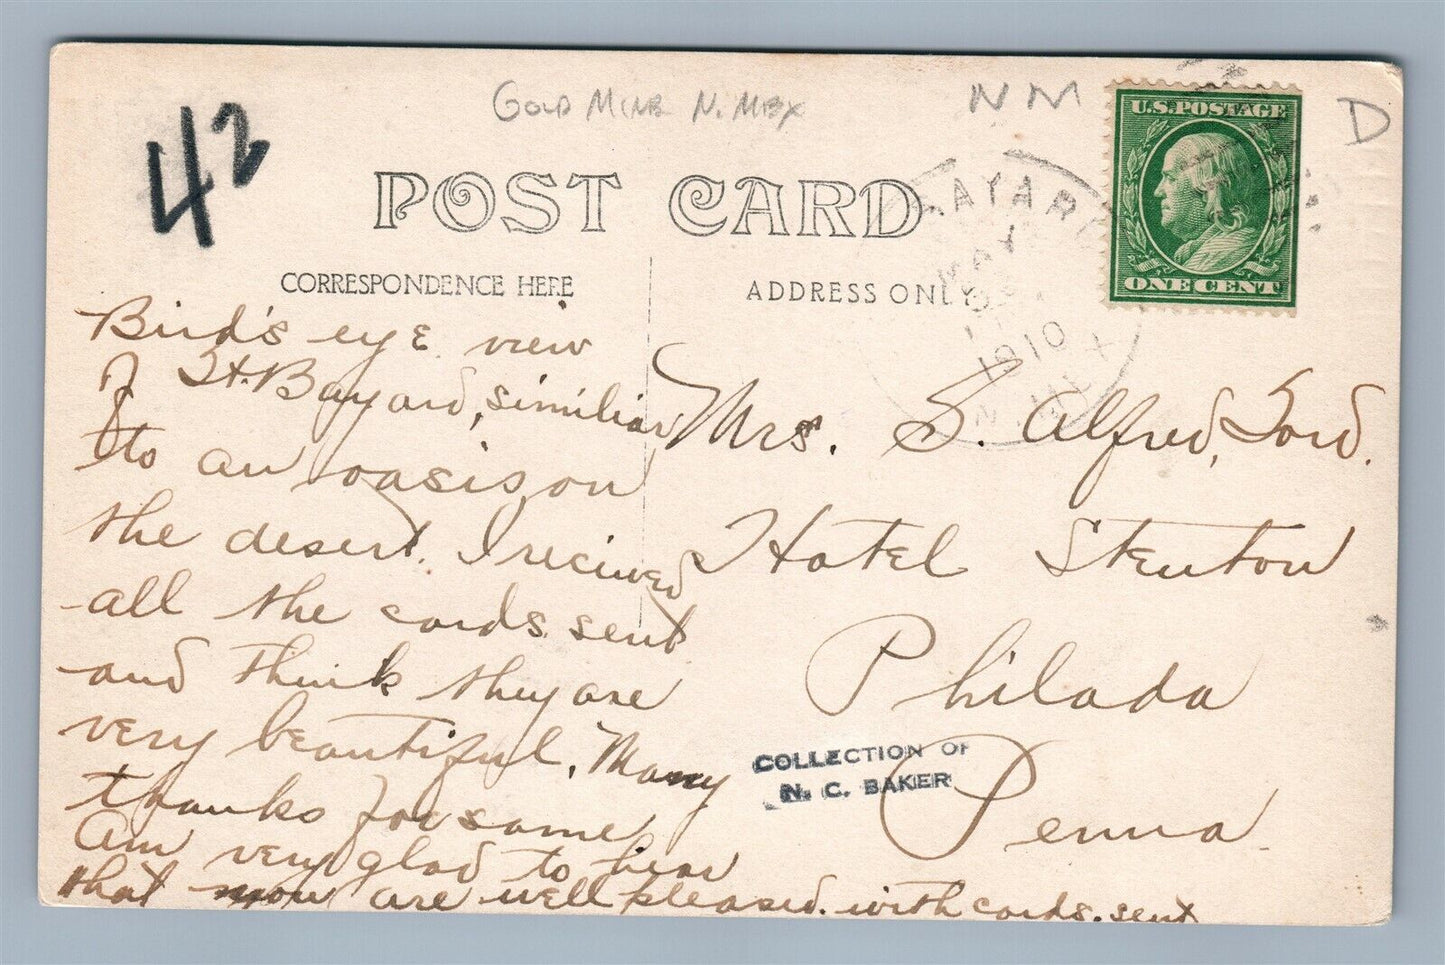 GOLD MINE N. MEX
NM
D
42
U.S. POSTAGE
ONE CENT
POST CARD
CORRESPONDENCE HERE
ADDRESS ONLY
BAYARD
MAY
1910
N. MEX
Bird's eye view
of Ft. Bayard, similiar
to an oasis on
the desert. I recieved
all the cards sent
and think they are
very beautiful. Many
thanks for same
Am very glad to hear
that you are well pleased with cards sent
Mrs. S. Alfred, Ford.
Hotel Stenton
Philada
Penna.
COLLECTION OF
N. C. BAKER